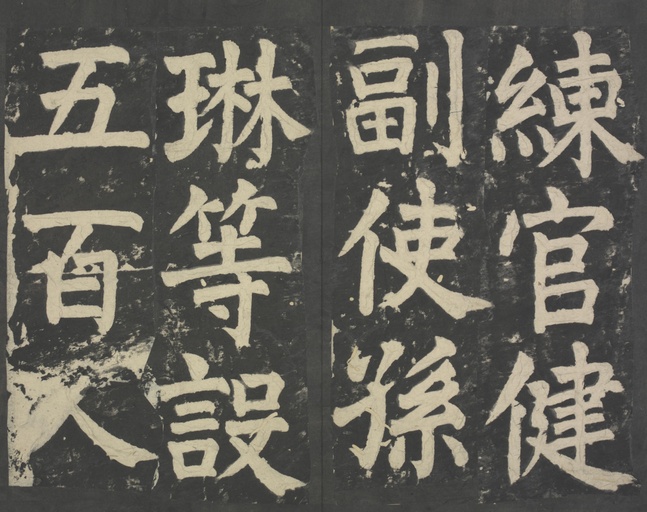 練官健
副使孫
琳等設
五百人